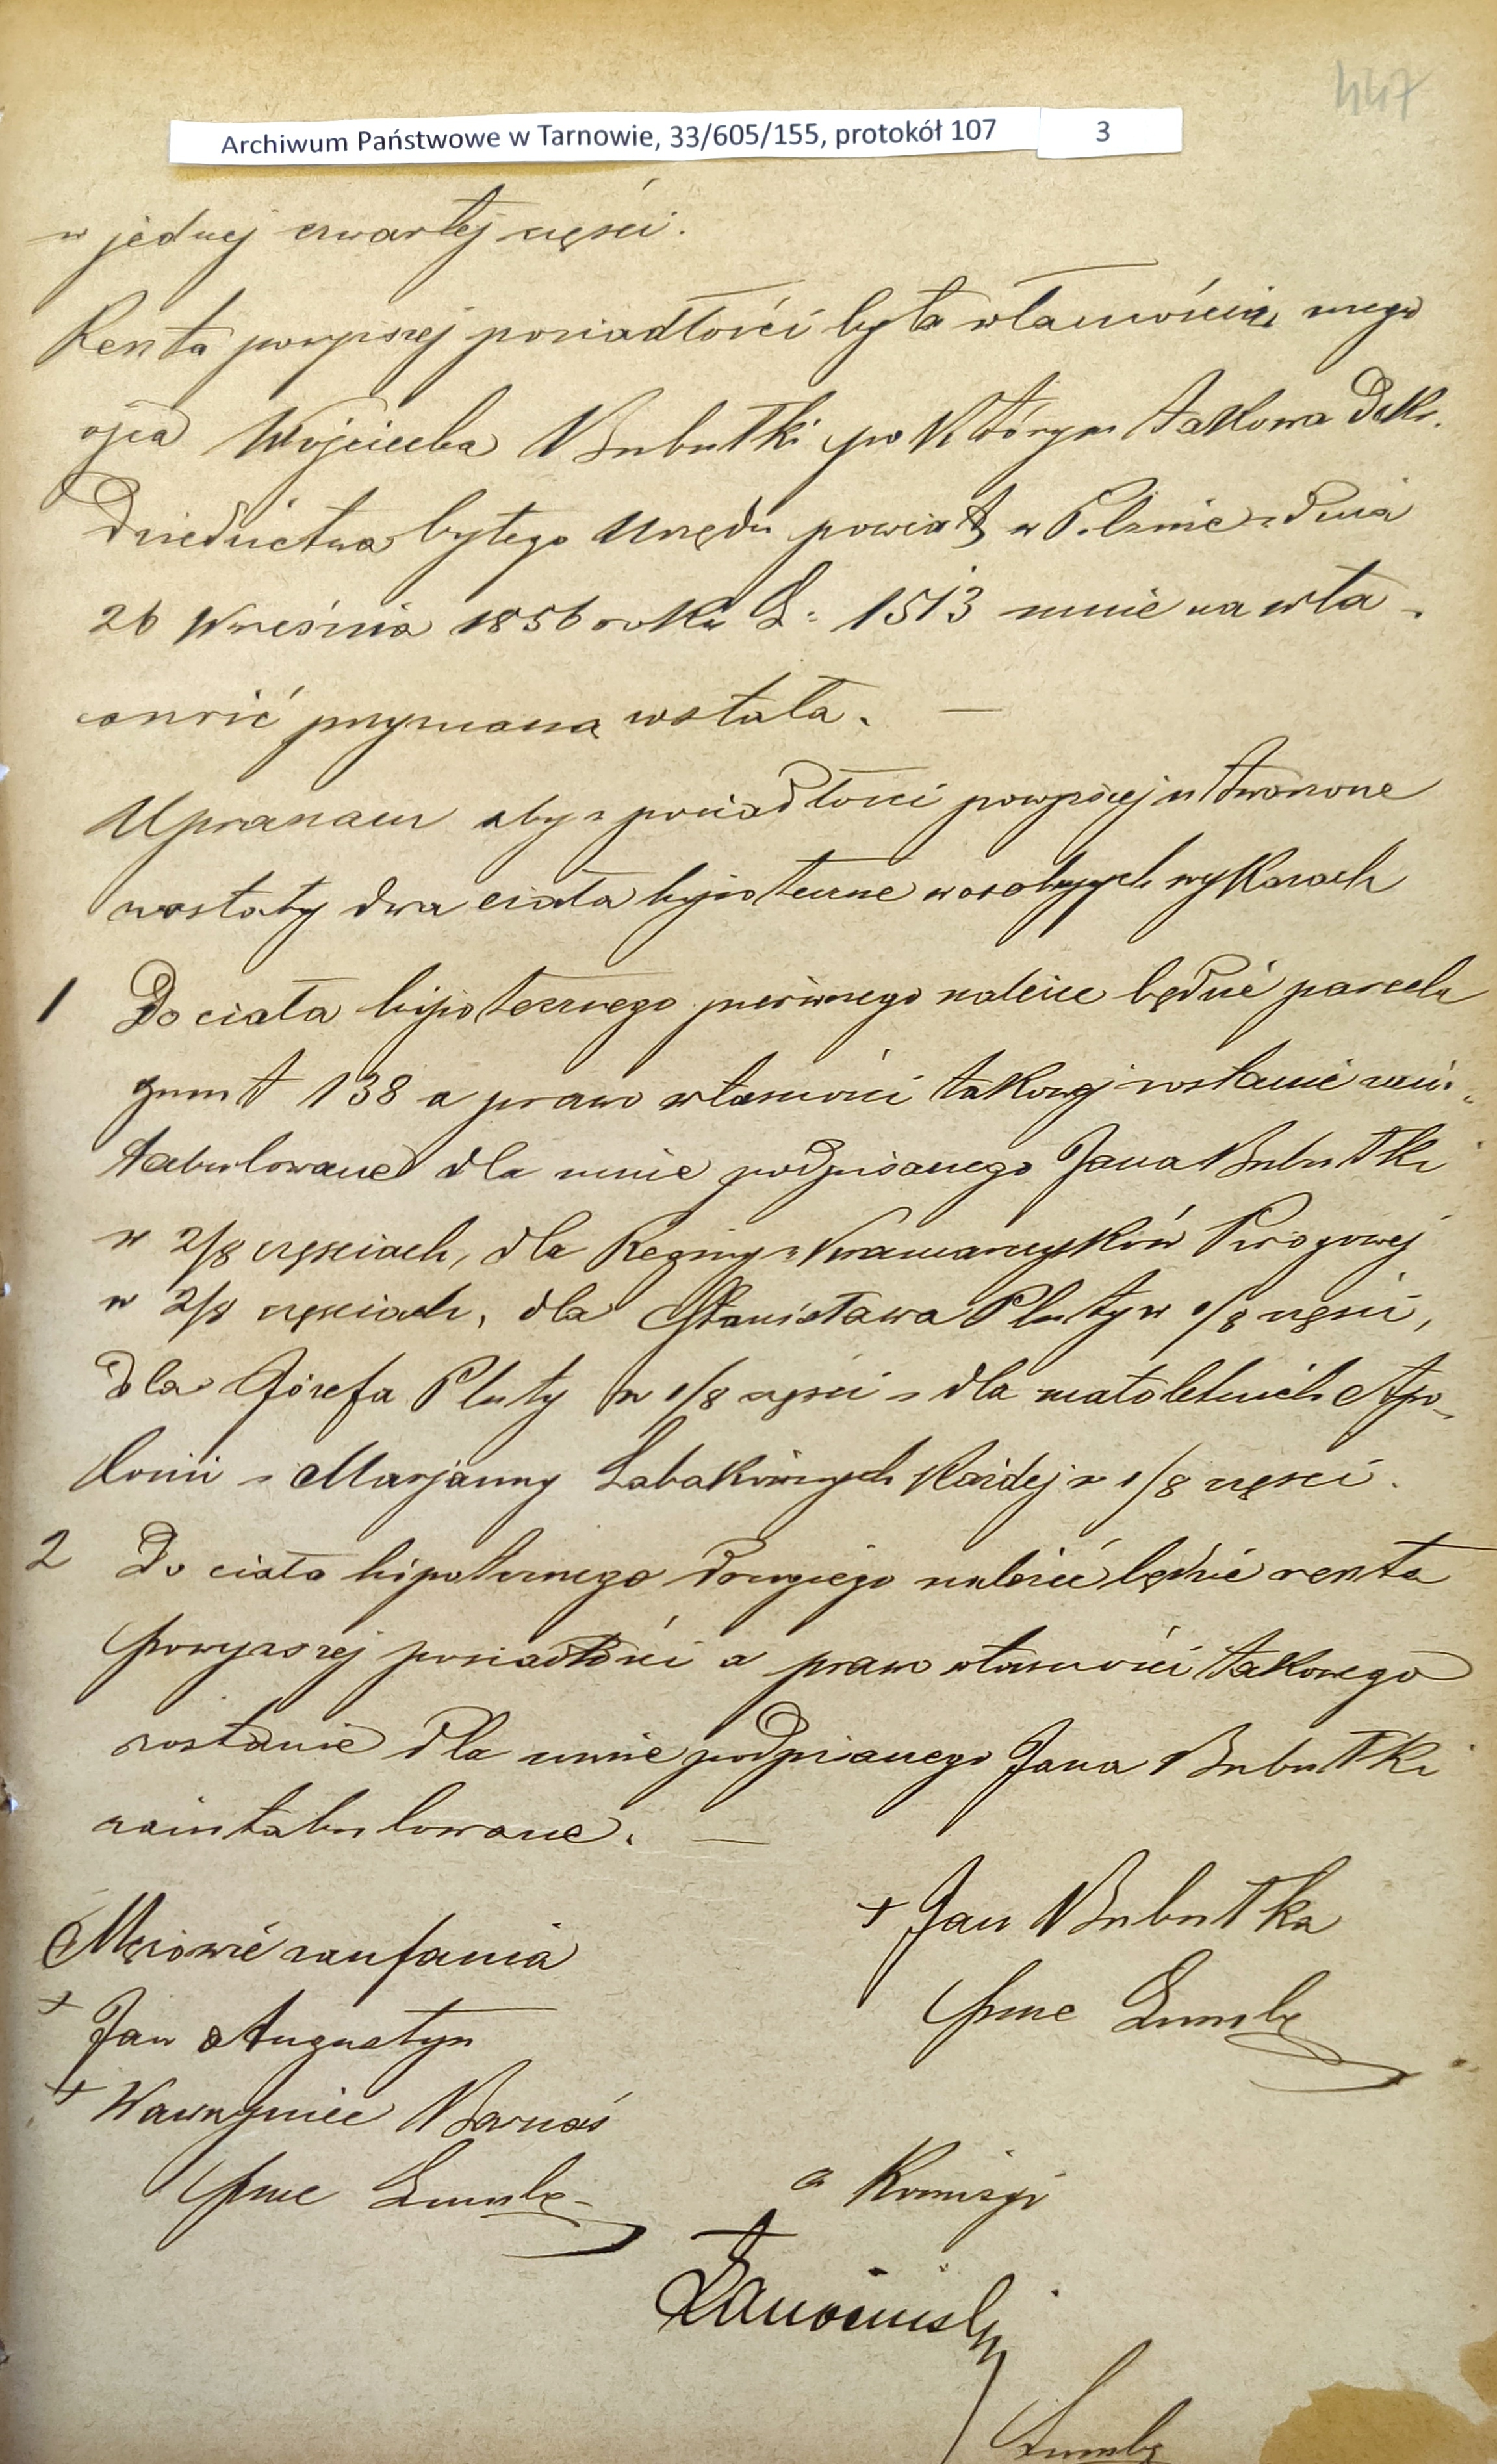 447
Archiwum Państwowe w Tarnowie, 33/605/155, protokół 107 3
w jednej czwartej części.
Reszta powyższej posiadłości była własnością mego
ojca Wojciecha Bubułki po którym takowa Dekr.
Dziedzictwa byłego Urzędu powiat w Pilznie z dnia
26 Września 1856 roku L: 1513 mnie na wła-
sność przyznaną została. —
Upraszam aby z posiadłości powyższej utworzone
zostały dwa ciała hipoteczne w osobnych wykazach
1 Do ciała hipotecznego pierwszego należeć będzie parcela
grunt 138 a prawo własności takowej zostanie zain-
tabulowane dla mnie podpisanego Jana Bubułki
w 2/8 częściach, dla Reginy z Pirogowej
w 2/8 częściach, dla Stanisława Pluty w 1/8 części,
dla Józefa Pluty w 1/8 części i dla małoletnich Apo-
lonii i Marjanny Łabakównych każdej w 1/8 części.
2 Do ciała hipotecznego drugiego należeć będzie reszta
powyższej posiadłości a prawo własności takowego
zostanie dla mnie podpisanego Jana Bubułki
zaintabulowane. —
+ Jan Bubułka
Mężowie zaufania
+ Jan Augustyn
+ Wawrzyniec Barnaś
Komisyi